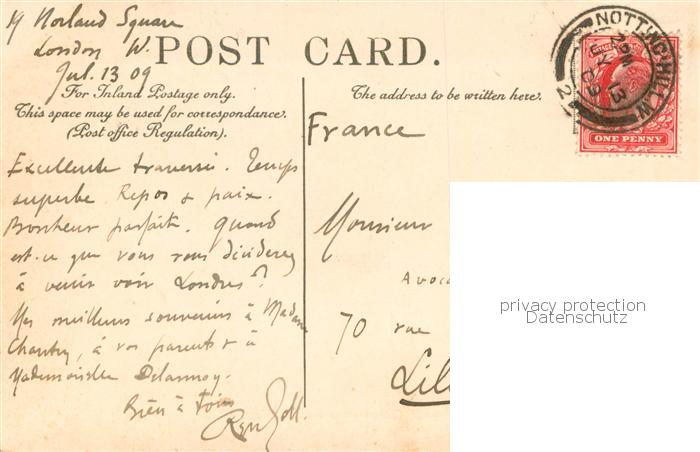 19 Norland Square
London W.
Jul. 13 09
POST CARD.
For Inland Postage only.
This space may be used for correspondance.
(Post office Regulation).
The address to be written here.
NOTTING-HILL.W.
13
09
ONE PENNY
France
Excellente traversée. Temps
superbe Repos & paix.
Bonheur parfait. Quand
est-ce que vous vous déciderez
à venir voir Londres?
Mes meilleurs souvenirs à Madame
à vos parents & à
Mademoiselle Delannoy.
Bien à toi
Monsieur
Avoca
70 rue
Lill
privacy protection
Datenschutz